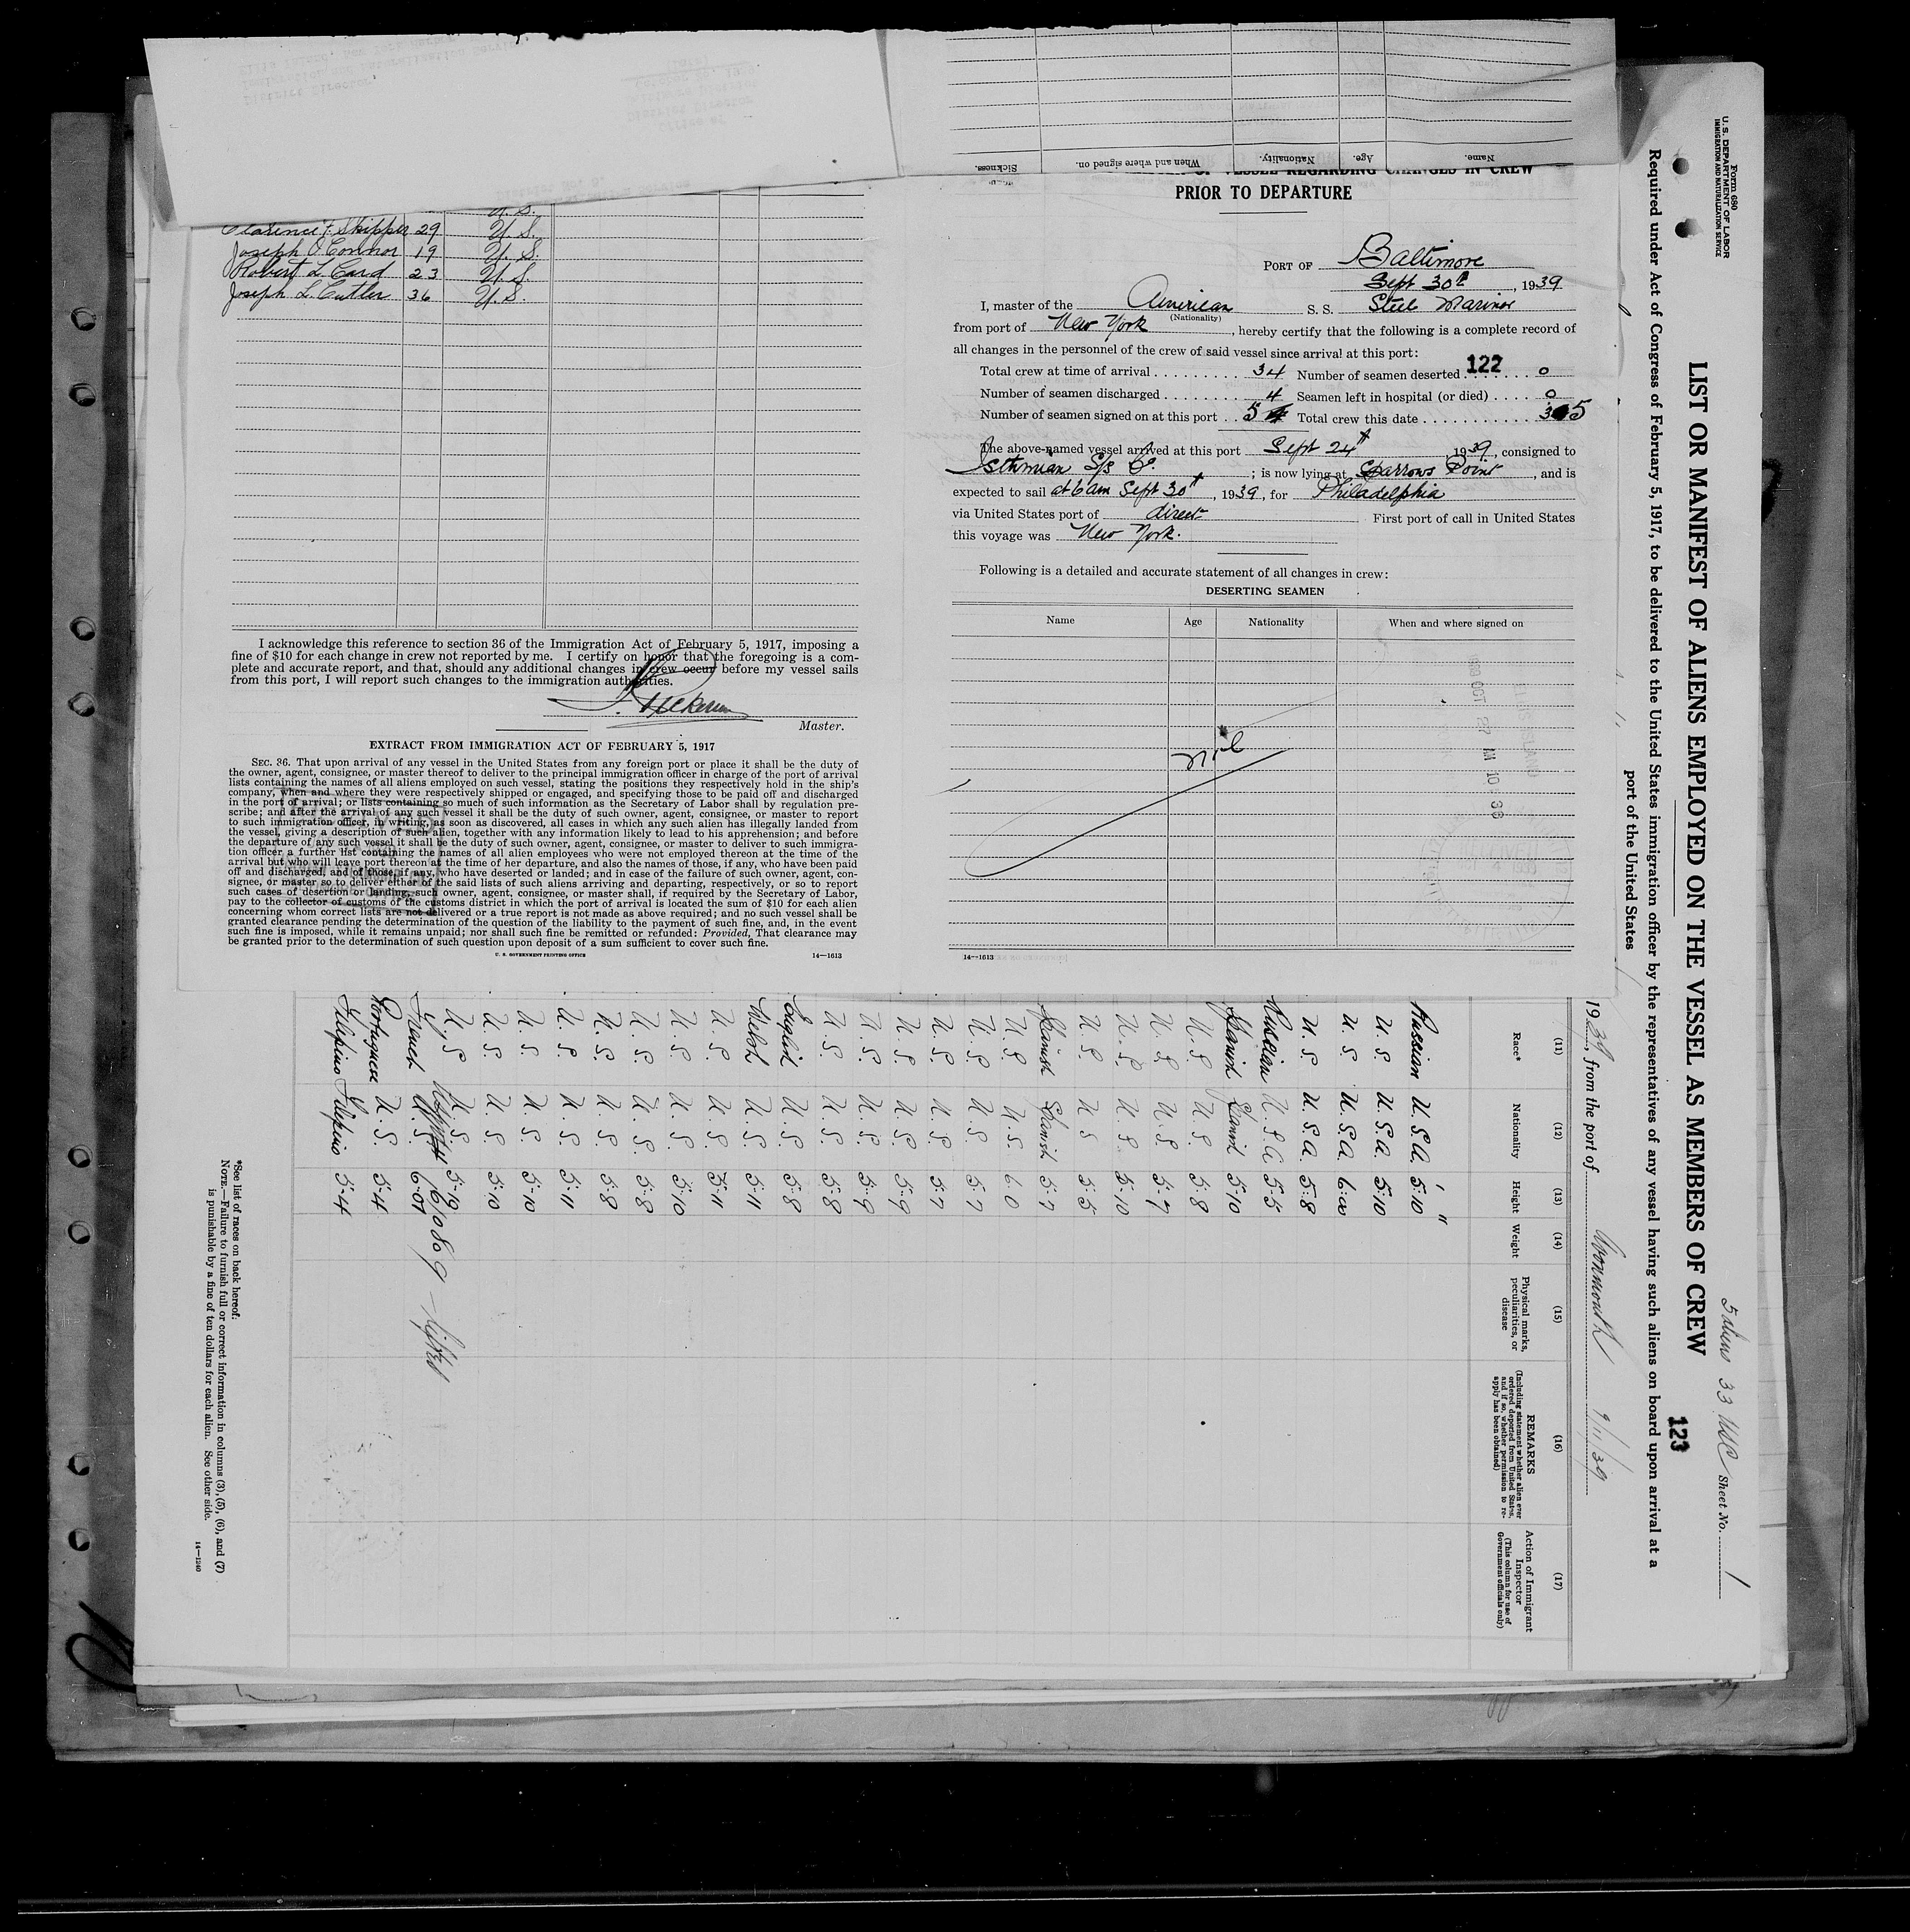 Sickness.
When and where signed on.
Nationality.
Age.
Name.
U.S.
Clarence F. Skipper 29 U.S.
Joseph O'Connor 19 U.S.
Robert L. Card 23 U.S.
Joseph L. Cutler 36 U.S.
I acknowledge this reference to section 36 of the Immigration Act of February 5, 1917, imposing a
fine of $10 for each change in crew not reported by me. I certify on honor that the foregoing is a com-
plete and accurate report, and that, should any additional changes in crew occur before my vessel sails
from this port, I will report such changes to the immigration authorities.
Master.
EXTRACT FROM IMMIGRATION ACT OF FEBRUARY 5, 1917
SEC. 36. That upon arrival of any vessel in the United States from any foreign port or place it shall be the duty of
the owner, agent, consignee, or master thereof to deliver to the principal immigration officer in charge of the port of arrival
lists containing the names of all aliens employed on such vessel, stating the positions they respectively hold in the ship's
company, when and where they were respectively shipped or engaged, and specifying those to be paid off and discharged
in the port of arrival; or lists containing so much of such information as the Secretary of Labor shall by regulation pre-
scribe; and after the arrival of any such vessel it shall be the duty of such owner, agent, consignee, or master to report
to such immigration officer, in writing, as soon as discovered, all cases in which any such alien has illegally landed from
the vessel, giving a description of such alien, together with any information likely to lead to his apprehension; and before
the departure of any such vessel it shall be the duty of such owner, agent, consignee, or master to deliver to such immigra-
tion officer a further list containing the names of all alien employees who were not employed thereon at the time of the
arrival but who will leave port thereon at the time of her departure, and also the names of those, if any, who have been paid
off and discharged, and of those, if any, who have deserted or landed; and in case of the failure of such owner, agent, con-
signee, or master so to deliver either of the said lists of such aliens arriving and departing, respectively, or so to report
such cases of desertion or landing, such owner, agent, consignee, or master shall, if required by the Secretary of Labor,
pay to the collector of customs of the customs district in which the port of arrival is located the sum of $10 for each alien
concerning whom correct lists are not delivered or a true report is not made as above required; and no such vessel shall be
granted clearance pending the determination of the question of the liability to the payment of such fine, and, in the event
such fine is imposed, while it remains unpaid; nor shall such fine be remitted or refunded: Provided, That clearance may
be granted prior to the determination of such question upon deposit of a sum sufficient to cover such fine.
U. S. GOVERNMENT PRINTING OFFICE 14—1613
OF VESSEL REGARDING CHANGES IN CREW
PRIOR TO DEPARTURE
PORT OF Baltimore
Sept 30th, 1939
I, master of the American S. S. Steel Mariner
(Nationality)
from port of New York, hereby certify that the following is a complete record of
all changes in the personnel of the crew of said vessel since arrival at this port:
122
Total crew at time of arrival 34 Number of seamen deserted 0
Number of seamen discharged 4 Seamen left in hospital (or died) 0
Number of seamen signed on at this port 5 Total crew this date 35
The above-named vessel arrived at this port Sept 24th 1939, consigned to
Isthmian S/s Co.; is now lying at Sparrows Point, and is
expected to sail at 6 am Sept 30th, 1939, for Philadelphia
via United States port of direct First port of call in United States
this voyage was New York.
Following is a detailed and accurate statement of all changes in crew:
DESERTING SEAMEN
Name Age Nationality When and where signed on
Nil
14—1613
Form 680
U. S. DEPARTMENT OF LABOR
IMMIGRATION AND NATURALIZATION SERVICE
5 aliens 33 USC Sheet No. 1
LIST OR MANIFEST OF ALIENS EMPLOYED ON THE VESSEL AS MEMBERS OF CREW
123
Required under Act of Congress of February 5, 1917, to be delivered to the United States immigration officer by the representatives of any vessel having such aliens on board upon arrival at a
port of the United States
1939, from the port of Avonmouth 9/11/39
(11) (12) (13) (14) (15) (16) (17)
Race* Nationality Height Weight
Physical marks, peculiarities, or disease
REMARKS
(Including statement whether alien ever ordered deported from United States, and if so, whether permission to re-apply has been obtained)
Action of Immigrant Inspector
(This column for use of Government officials only)
Russian U.S.A. 5·10
U.S. U.S.A. 5·10
U.S. U.S.A. 6·00
U.S. U.S.A. 5·8
Russian U.S.A 5·5
Spanish Spanish 5·10
U.S. U.S. 5·8
U.S. U.S. 5·7
U.S. U.S. 5·10
U.S. U.S 5·5
Spanish Spanish 5·7
U.S. U.S. 6·0
U.S. U.S. 5·7
U.S. U.S. 5·7
U.S. U.S. 5·9
U.S. U.S. 5·9
U.S. U.S. 5·8
English U.S. 5·8
Welsh U.S. 5·11
U.S. U.S. 5·11
U.S. U.S. 5·10
U.S. U.S. 5·8
U.S. U.S. 5·8
U.S. U.S. 5·11
U.S. U.S. 5·10
U.S. U.S. 5·10
U.S. U.S. 5·10
French U.S.
Portuguese U.S. 5·4
Filipino Filipino 5·4
*See list of races on back hereof.
NOTE.—Failure to furnish full or correct information in columns (3), (5), (6), and (7)
is punishable by a fine of ten dollars for each alien. See other side.
14—1240